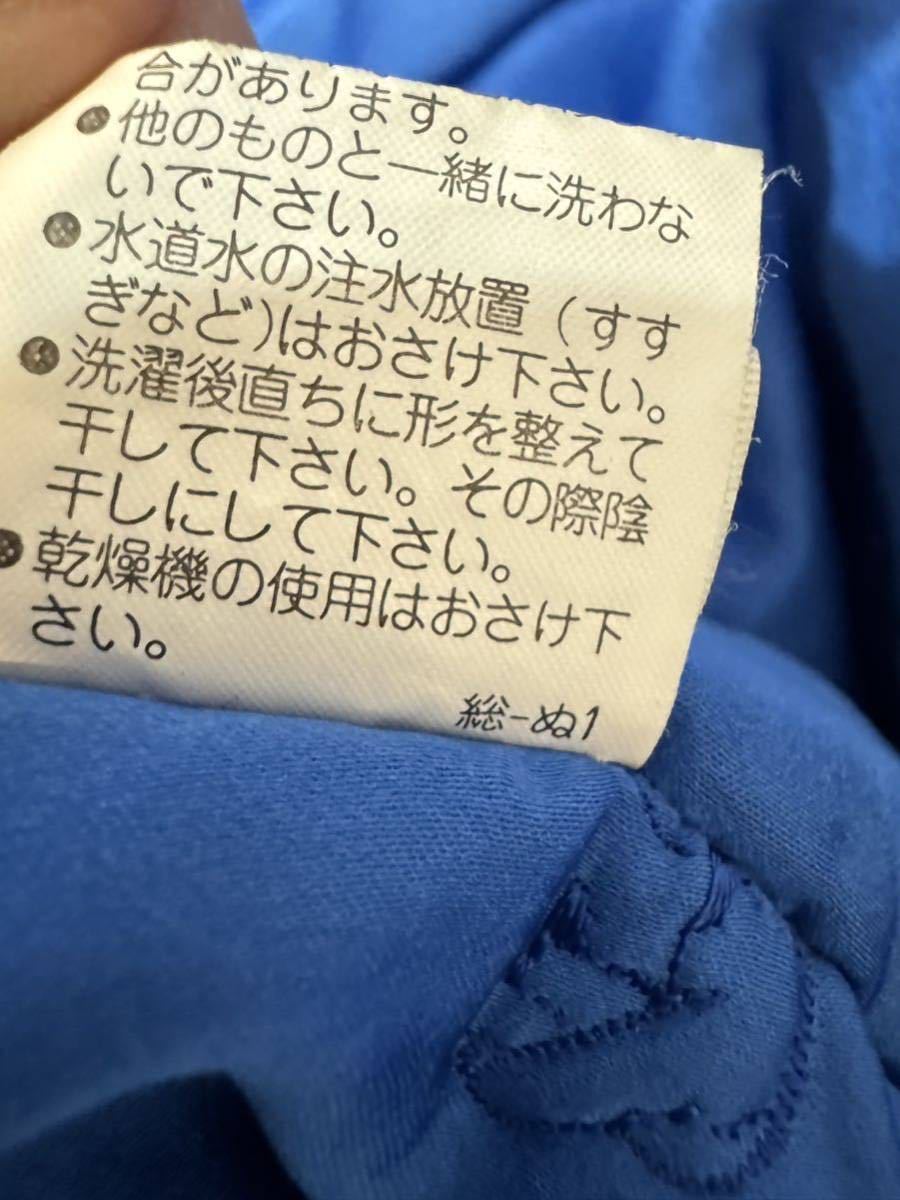 合があります。
●他のものと一緒に洗わな
いで下さい。
●水道水の注水放置(すす
ぎなど)はおさけ下さい。
●洗濯後直ちに形を整えて
干して下さい。その際陰
干しにして下さい。
●乾燥機の使用はおさけ下
さい。
総-ぬ1